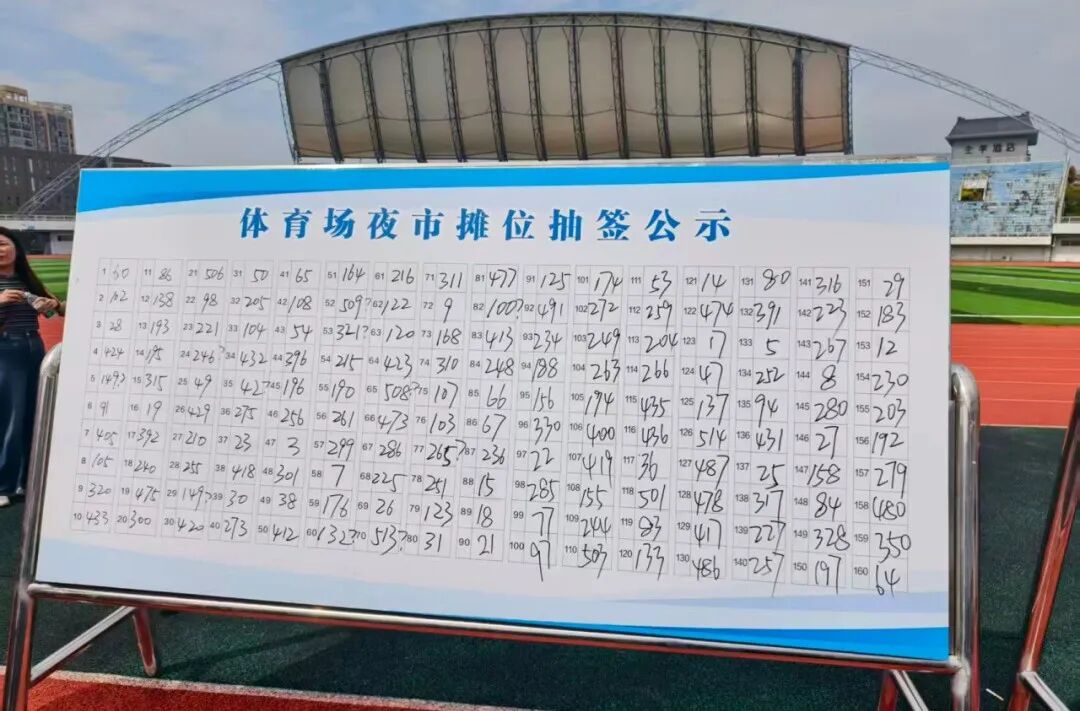 体育场夜市摊位抽签公示
1 60 11 86 21 506 31 50 41 65 51 164 61 216 71 311 81 477 91 125 101 174 111 53 121 14 131 80 141 316 151 29
2 102 12 138 22 98 32 205 42 108 52 509? 62 122 72 9 82 100? 92 491 102 272 112 259 122 474 132 391 142 223 152 183
3 28 13 193 23 221 33 104 43 54 53 321? 63 120 73 168 83 413 93 234 103 249 113 204 123 17 133 5 143 267 153 12
4 424 14 195 24 246? 34 432 44 396 54 215 64 423 74 310 84 248 94 188 104 263 114 266 124 47 134 252 144 8 154 230
5 149? 15 315 25 49 35 42? 45 196 55 190 65 508? 75 107 85 66 95 156 105 194 115 435 125 137 135 94 145 280 155 203
6 91 16 19 26 429 36 275 46 256 56 261 66 473 76 103 86 67 96 330 106 400 116 436 126 514 136 431 146 27 156 192
7 405 17 392 27 210 37 23 47 3 57 299 67 286 77 265? 87 236 97 22 107 419 117 36 127 487 137 25 147 158 157 279
8 105 18 240 28 255 38 418 48 301 58 7 68 225 78 251 88 15 98 285 108 155 118 501 128 478 138 317 148 84 158 480
9 320 19 475 29 149? 39 30 49 38 59 176 69 26 79 123 89 18 99 77 109 244 119 83 129 417 139 227 149 328 159 350
10 433 20 300 30 420 40 273 50 412 60 132? 70 513? 80 31 90 21 100 97 110 503 120 133 130 486 140 257 150 197 160 64